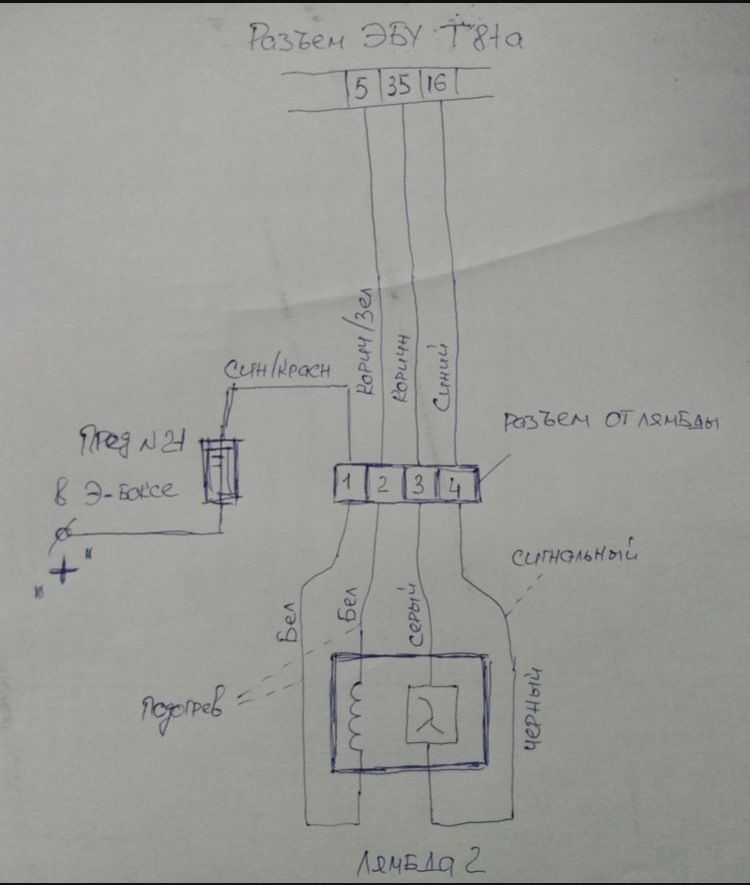 Разъем ЭБУ Т81а
5 35 16
Корич/Зел
Коричн
Синий
Син/Красн
Разъем от лямбды
Пред N21
в Э-боксе
1 2 3 4
"+"
сигнальный
Бел
Бел
Серый
Черный
Подогрев
λ
Лямбда 2